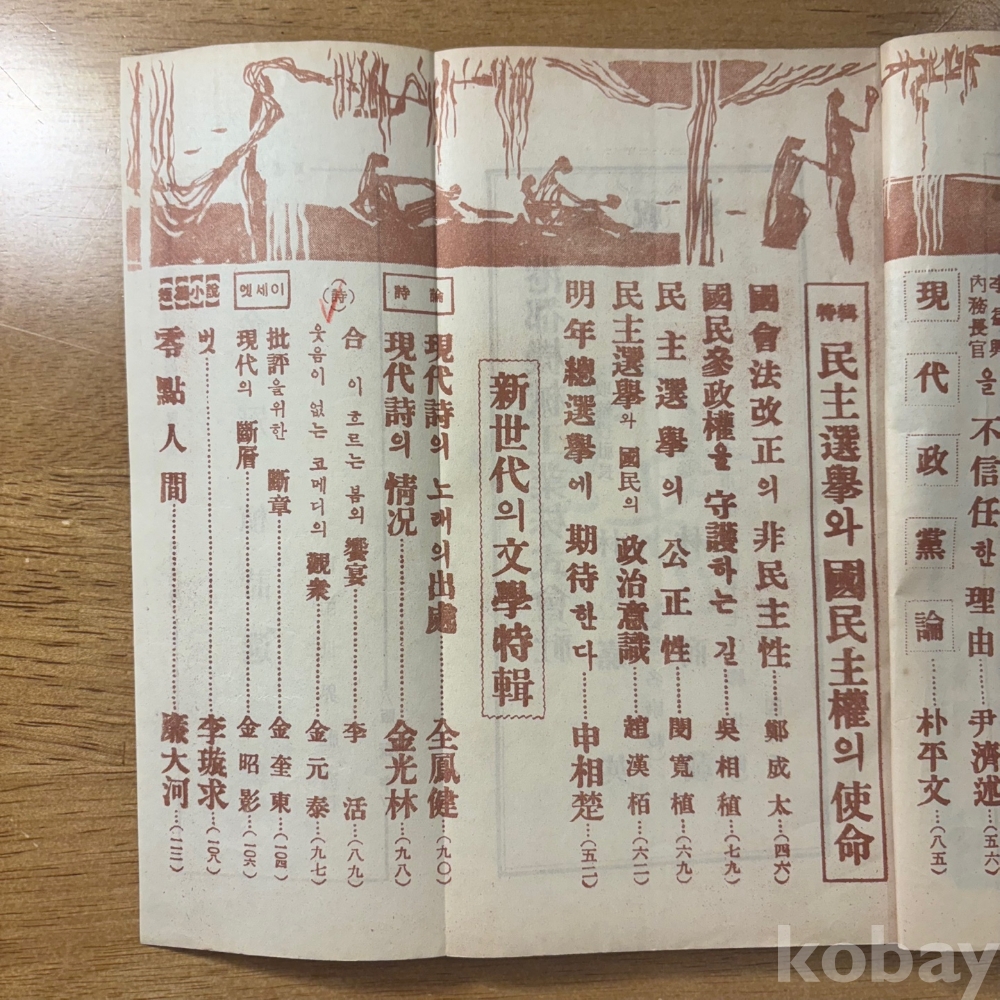 李
內務長官을 不信任한 理由……尹濟述…(五六)
現代政黨論……朴平文…(八五)
特輯
民主選擧와 國民主權의 使命
國會法改正의 非民主性……鄭成太…(四六)
國民參政權을 守護하는 길……吳相植…(七九)
民主選擧의 公正性……閔寬植…(六九)
民主選擧와 國民의 政治意識……趙漢栢…(六二)
明年總選擧에 期待한다……申相楚…(五二)
新世代의 文學特輯
詩論
現代詩의 노래의 出處……全鳳健…(九〇)
現代詩의 情况……金光林…(九八)
(詩)
合 이 흐르는 봄의 饗宴……李活…(八九)
웃음이 없는 코메디의 觀衆……金元泰…(九七)
엣세이
批評을위한 斷章……金奎東…(一〇四)
現代의 斷層……金昭影…(一〇六)
短篇小說
벗……李璇求…(一〇八)
零點人間……廉大河…(一一二)
kobay